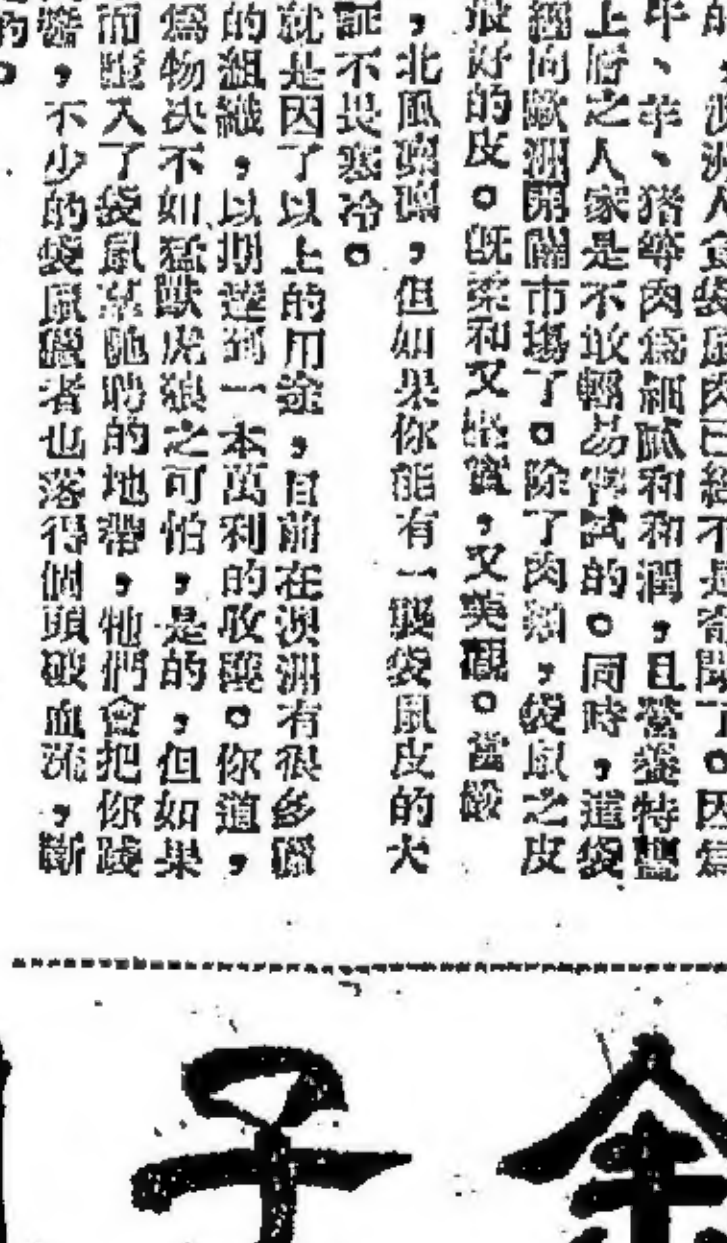 的，澳洲人食袋鼠肉已經不是奇聞了。因爲
牛、羊、猪等肉爲細膩和和潤，且營養特豐
上層之人家是不敢輕易嘗試的。同時，這袋
經向歐洲開闢市塲了。除了肉類，袋鼠之皮
最好的皮。旣柔和又堅實，又美觀。當嚴
，北風凜凜，但如果你能有一襲袋鼠皮的大
証不畏寒冷。
就是因了以上的用途，目前在澳洲有很多獵
的組織，以期達到一本萬利的收穫。你道，
爲物决不如猛獸虎狼之可怕，是的，但如果
而誤入了袋鼠羣馳聘的地帶，牠們會把你踐
，不少的袋鼠獵者也落得個頭破血流，斷
的。
金
子